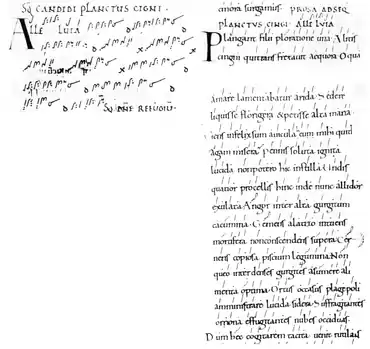 SQ CANDIDI PLANCTUS CIGNI
ALLE LUIA
SQ DNE REFUGIU
surgamus. PROSA AD SEQ
PLANCTUS CINGI ALLE LUIA
Plangant filii ploratione una Alitis
cingni qui transfretauit aequora O qua
amare lamentabatur arida Se dere
liquisse florigera & petisse alta maria
iens infelix sum auicula eu mihi quid
agam misera Pennis soluta
lucida non potero hic in stilla Undis
quatior procellis hinc inde nunc allidor
exulata Angor inter alta gurgitum
cacumina Gemens alatizo intuens
mortifera non conscendens supera Cer
nens copiosa piscium legumina Non
queo in denses gurgites assumere ali
menta optima Ortus occasus plage poli
administrate lucida sidera Sufflagitantes
oriona effugitantes nubes occiduas
Dum hec cogitarem tacita uenit rutilans